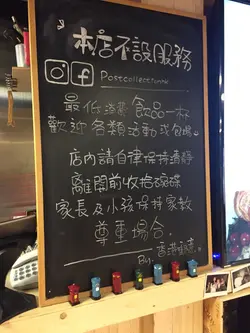 本店不設服務
Postcollectionhk
最低消費飲品一杯
歡迎各類活動或包場。
店内請自律保持清靜
離開前收拾碗碟
家長及小孩保持家教
尊重場合。
By.